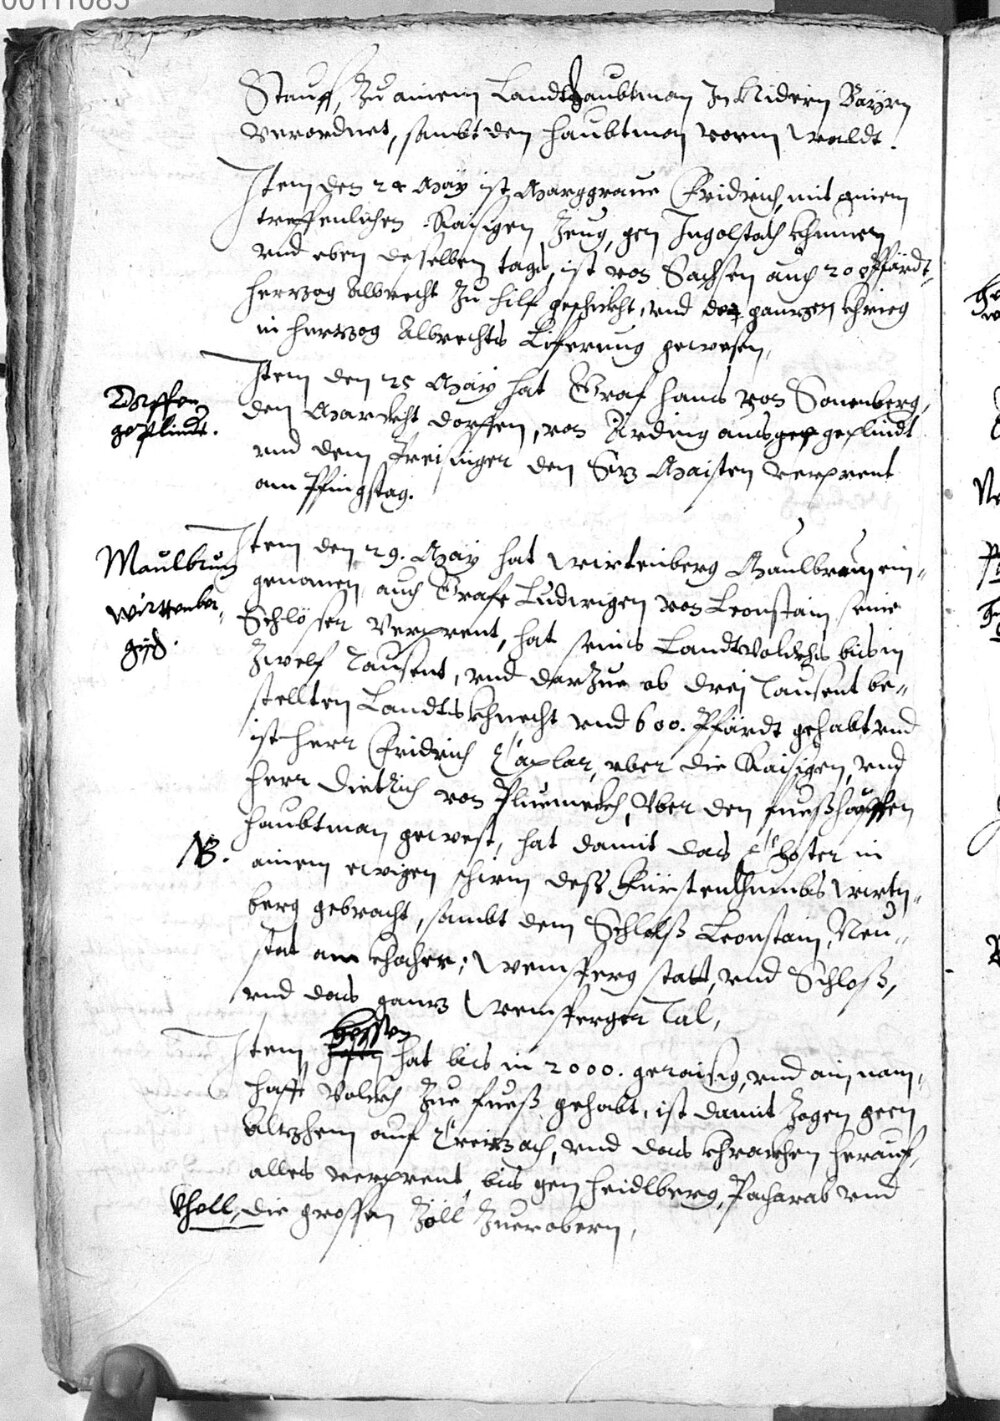 00111085
Stauff, zu ainem Landtshaubtman In Nidern Bayrn
verordnet, sambt den haubtman vorm Waldt.
Item den 24 May ist Marggraue Fridrich, mit ainem
treffenlichen Raisigen Zeug, gen Ingolstath khumen
vnd eben desselben tags, ist von Sachsen auch 200 Pfärdt,
herzog Albrecht zu hilf geschickht, vnd den ganzen khrieg
in herzog Albrechts Liferung gewesen,
Item den 25 May hat Graf hans von Sonenberg,
Dorffen
den Marckht dorffen, von Ärding aus geplindt
geplindt.
vnd dem Freisinger den Maisten verprent
am Pfingstag.
Item den 29. May hat Wirtenberg Maulbrun ein-
Maulbrun
genomen, auch Grafe Ludwigen von Leonstain seine
Wirttenber-
Schlösser verprent, hat seins Landtvolckhs bis in
gisch.
zwelf Tausent, vnd darzue ob drej Tausent be-
stellten Landtskhnecht vnd 600. Pfärdt gehabt vnd
ist herr Fridrich Caplar, vber die Raisigen, vnd
herr Dietrich von Pluemekh, Vber den fuesshauffen
haubtman gewest, hat damit das Closter in
NB.
ainem ewigen schirm dess Fürstenthumbs Wirtn-
berg gebracht, sambt dem Schloß Leonstain, Neu-
stat am khocher; Weinsperg statt, vnd Schloß,
vnd das ganz Weinsperger Tal,
hessen
Item hat bis in 2000. geraisig, vnd ain nam-
hafft Volckh zue fuess gehabt, ist damit zogen geen
Altzhem auf Creitznach, vnd das khrachen herauf,
alles verprent, bis gen heidlberg, Pacharab vnd
Choll, die grossen Zöll zuerobern,